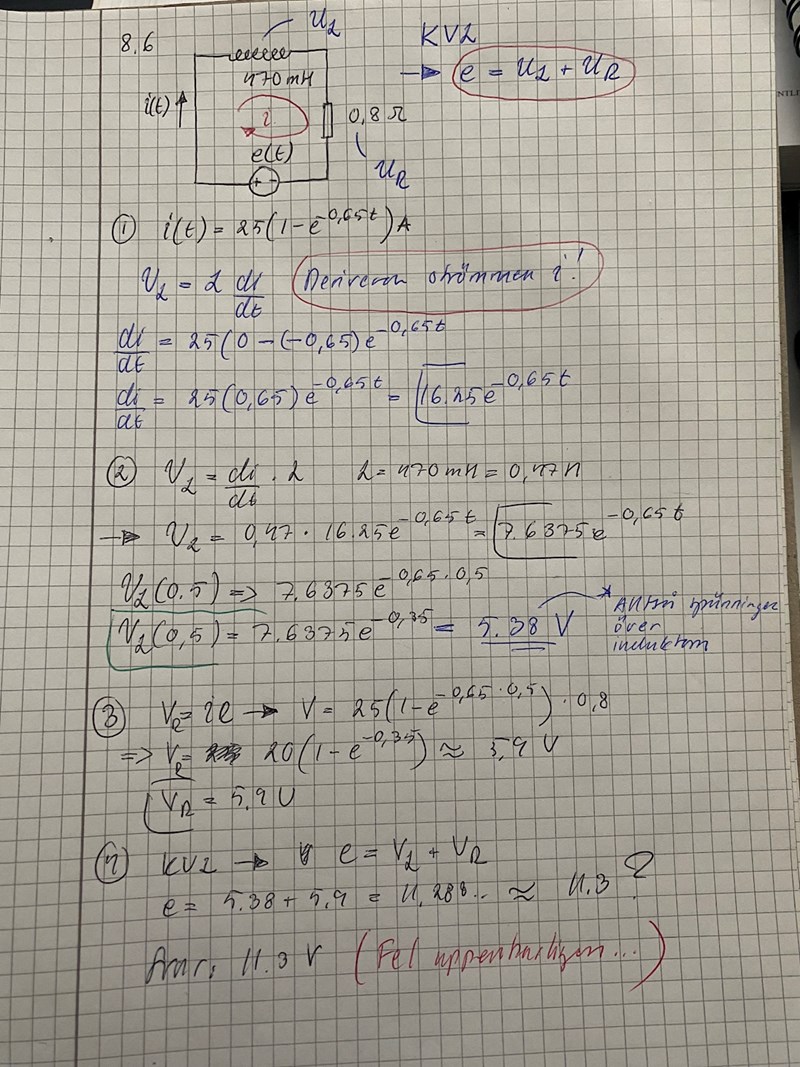 8.6
U_L
470mH
i(t)
i
0,8 Ω
e(t)
+ -
U_R
KVL
→ e = U_L + U_R
① i(t) = 25(1-e^-0,65t)A
V_L = L di/dt (Deriveran strömmen i!)
di/dt = 25(0-(-0,65)e^-0,65t
di/dt = 25(0,65)e^-0,65t = 16.25e^-0,65t
② V_L = di/dt · L L = 470mH = 0,47H
→ V_L = 0,47 · 16.25e^-0,65t = 7.6375e^-0,65t
V_L(0.5) => 7.6375e^-0,65·0,5
V_L(0,5) = 7.6375e^-0,35 = 5.38 V
* Alltså spänningen
över
induktorn
③ V_R = iR → V = 25(1-e^-0,65·0,5) · 0,8
=> V_R = 20(1-e^-0,35) ≈ 5,9 V
V_R = 5,9 V
④ KVL → e = V_L + V_R
e = 5.38 + 5,9 = 11,288.. ≈ 11.3 ?
Ans: 11.3 V (Fel uppenbarligen...)